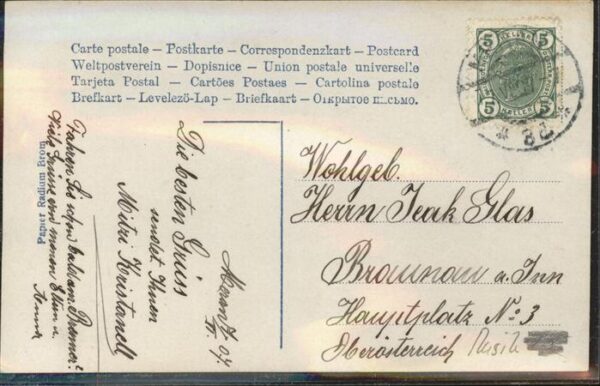 Carte postale – Postkarte – Correspondenzkart – Postcard
Weltpostverein – Dopisnice – Union postale universelle
Tarjeta Postal – Cartões Postaes – Cartolina postale
Brefkart – Levelező-Lap – Briefkaart – Открытое письмо.
5 5
5 HELLER 5
Papier Radium Brom
Meran
07.
Die besten Grüss
sendet Ihnen
Mitzi Kristanell
Fahren Sie schon bald am Brenner?
Viele Grüsse von meinen Eltern u.
Anna
Wohlgeb.
Herrn Jeak Glas
Braunau a. Inn
Hauptplatz No 3
Oberösterreich